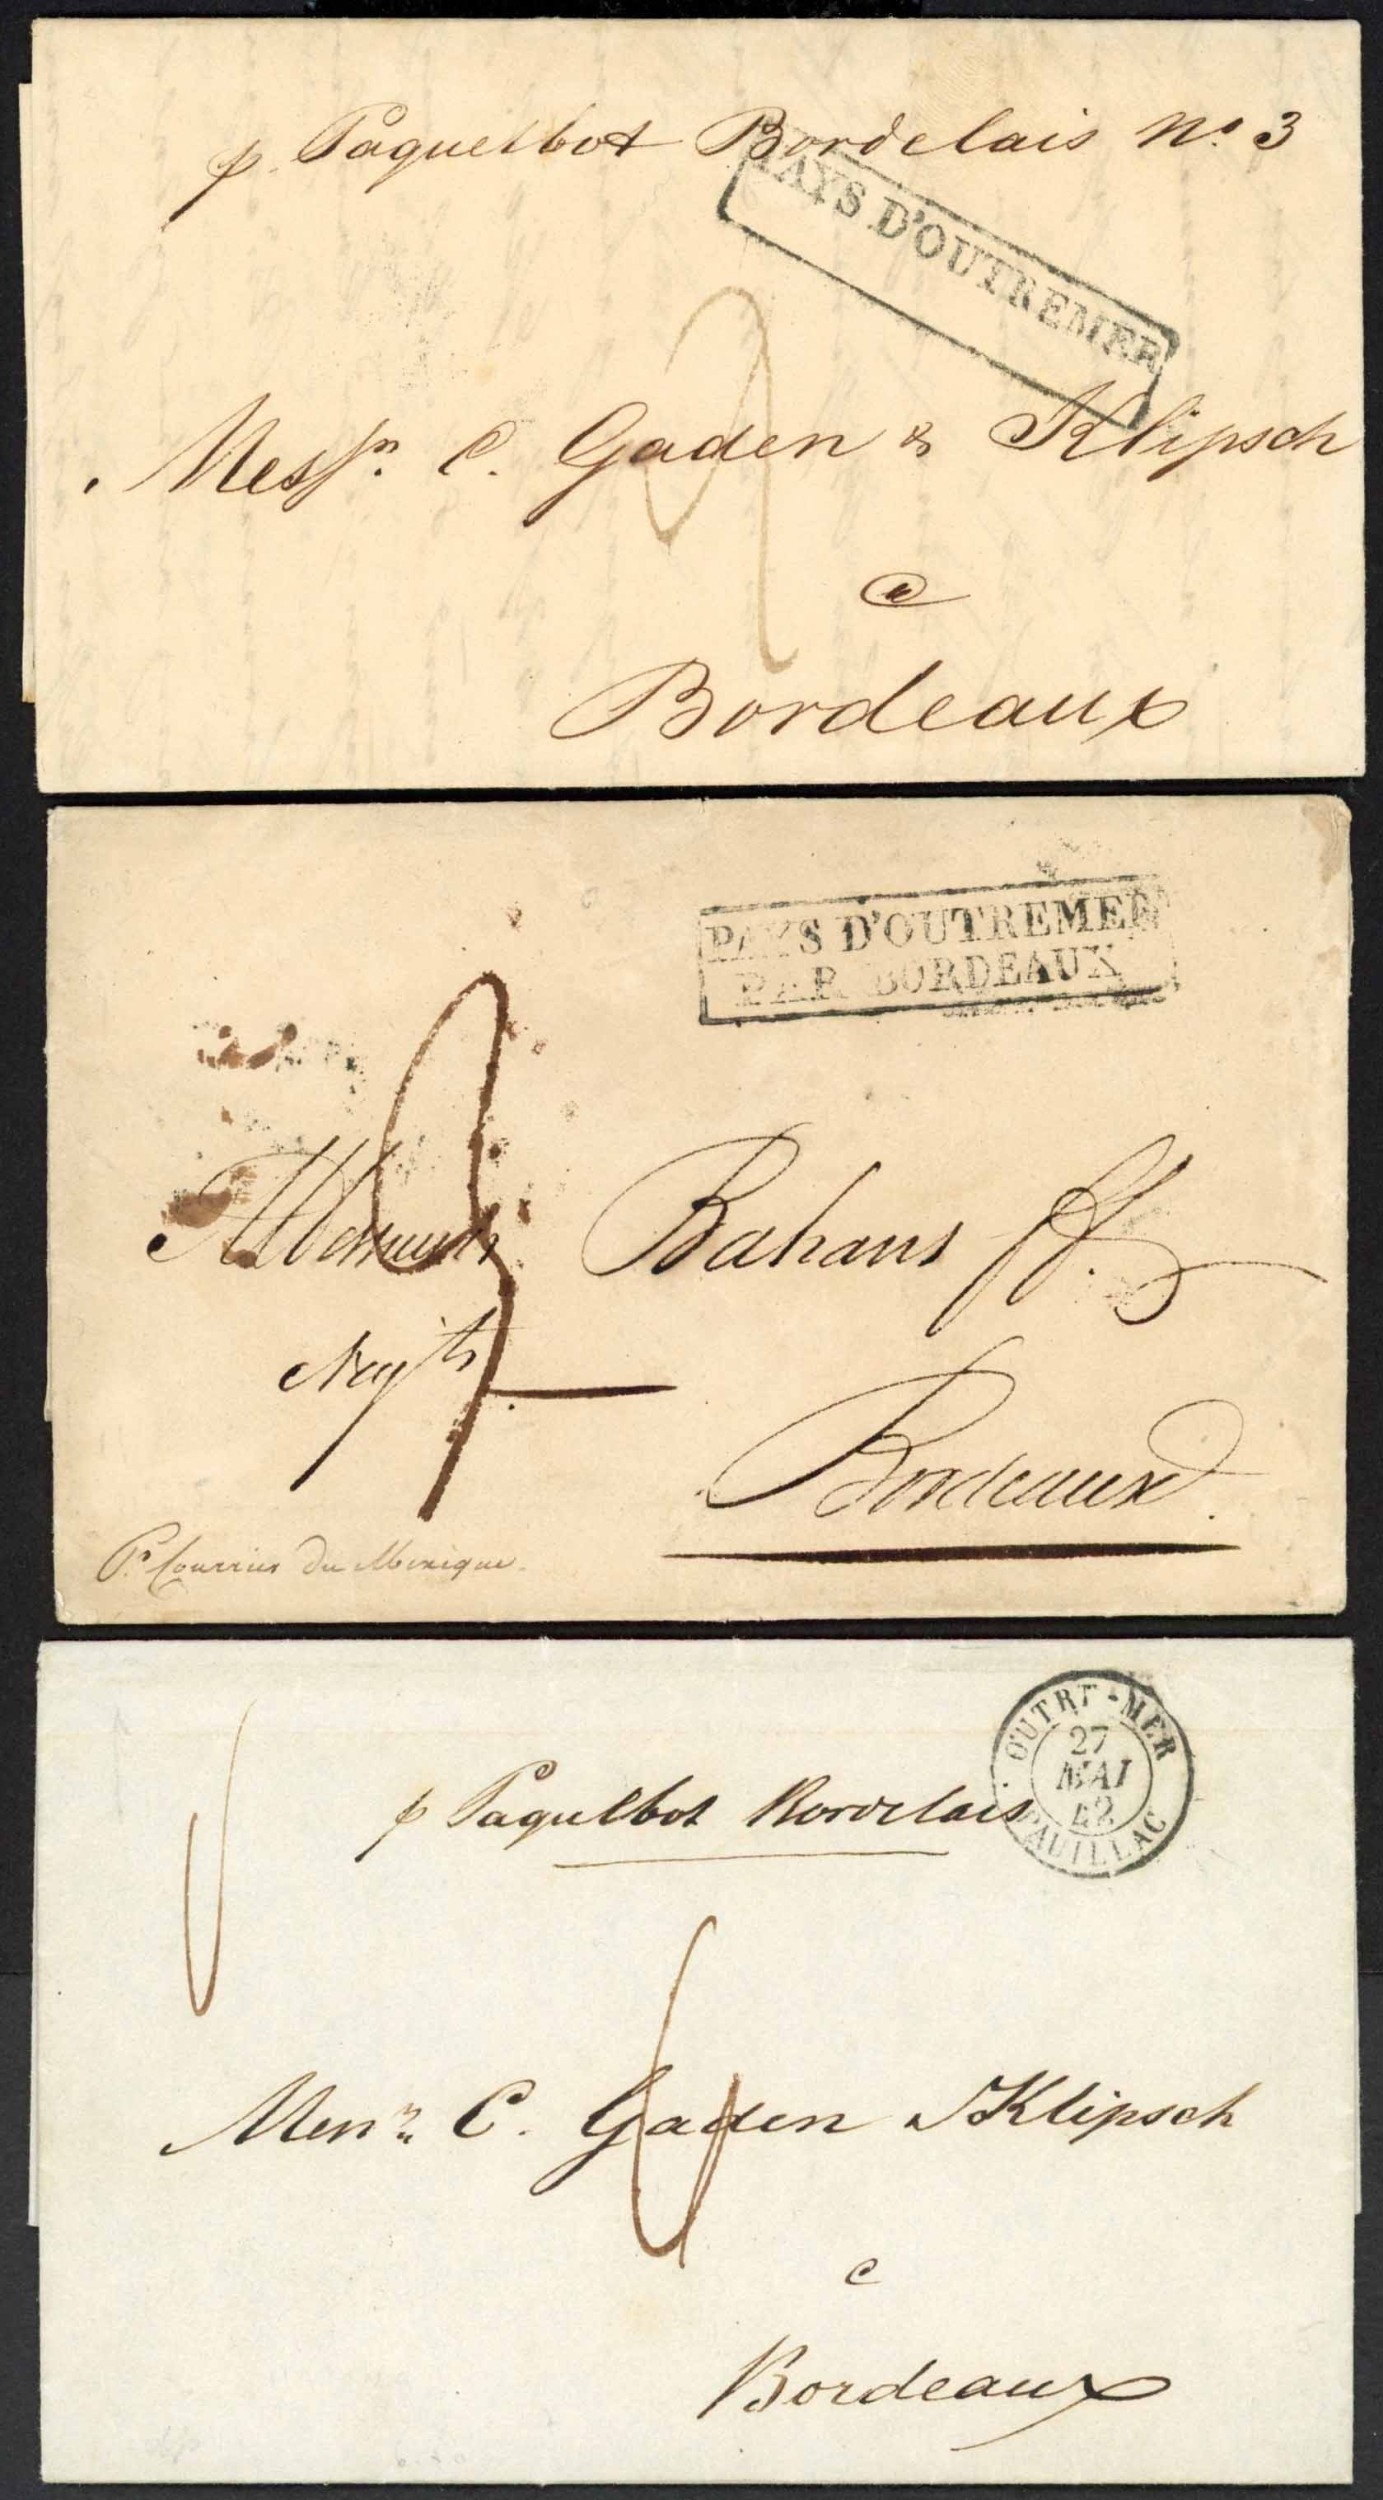 p. Paquetbot Bordelais No. 3
PAYS D'OUTREMER
2
Messrs. C. Gaden & Klipsch
a
Bordeaux
PAYS D'OUTREMER
PAR BORDEAUX
Bahans ff.
Negts.
Bordeaux
Pr. Courrier du Mexique.
OUTRE-MER
27
MAI
42
PAUILLAC
p Paquetbot Bordelais
Messrs. C. Gaden & Klipsch
a
Bordeaux